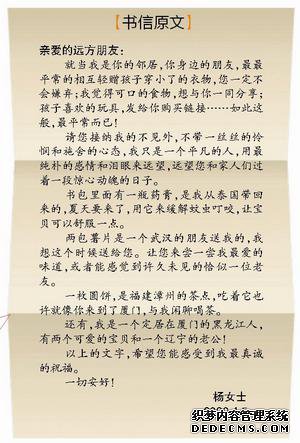 【书信原文】
亲爱的远方朋友：
就当我是你的邻居，你身边的朋友，最最
平常的相互轻赠孩子穿小了的衣物，您一定不
会嫌弃；我觉得可口的食物，想与你一同分享；
孩子喜欢的玩具，发给你购买链接……如此这
般，最平常而已！
请您接纳我的不见外，不带一丝丝的怜
悯和施舍的心态，我只是一个平凡的人，用最
纯朴的感情和泪眼来远望，远望您和家人们过
着一段惊心动魄的日子。
书包里面有一瓶药膏，是我从泰国带回
来的，夏天要来了，用它来缓解蚊虫叮咬，让宝
贝可以舒服一点。
两包薯片是一个武汉的朋友送我的，我
想这个时候送给您。让您来尝一尝我最爱的
味道，或者能感觉到许久未见的恰似一位老
友。
一枚圆饼，是福建漳州的茶点，吃着它也
许就像你来到了厦门，与我闲聊喝茶。
还有，我是一个定居在厦门的黑龙江人，
有两个可爱的宝贝和一个辽宁的老公！
以上的文字，希望您能感受到我最真诚
的祝福。
一切安好！
杨女士